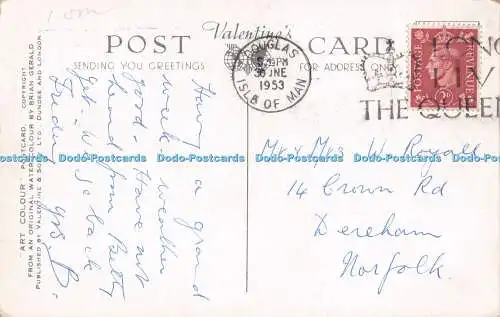 1 om
Valentine's
POST CARD
SENDING YOU GREETINGS
FOR ADDRESS ONLY
DOUGLAS
30 JNE
1953
ISLE OF MAN
LONG
LIV
THE QUEEN
POSTAGE
REVENUE
Having a grand
week. Weather
good. Have not
heard from Betty
get back
Friday.
Mr & Mrs W. Royall
14 Crown Rd
Dereham
Norfolk.
"ART COLOUR" POSTCARD. COPYRIGHT.
FROM AN ORIGINAL WATER-COLOUR BY BRIAN GERALD
PUBLISHED BY VALENTINE & SONS, LTD., DUNDEE AND LONDON
Dodo-Postcards Dodo-Postcards Dodo-Postcards Dodo-Postcards Dodo-Postcards